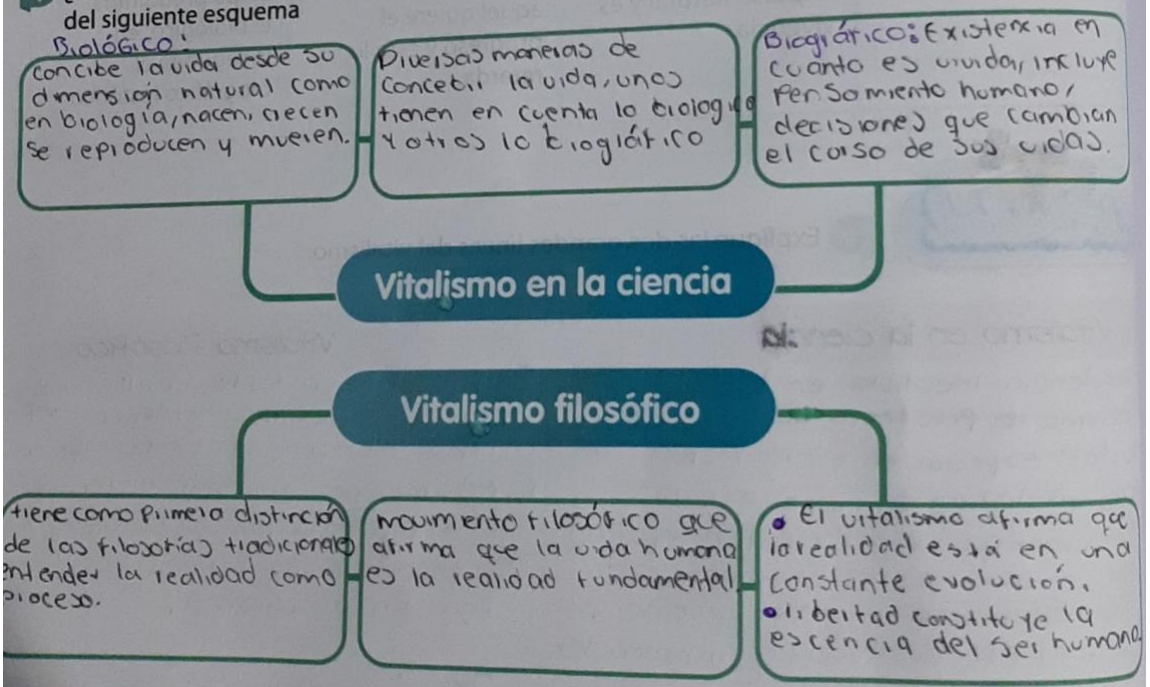 del siguiente esquema
Biológico:
concibe la vida desde su
dimensión natural como
en biología, nacen, crecen
se reproducen y mueren.
Diversas maneras de
concebir la vida, unos
tienen en cuenta lo biologico
y otros lo biográfico
Biográfico: Existencia en
cuanto es vivida, incluye
pensamiento humano,
decisiones que cambian
el curso de sus vidas.
Vitalismo en la ciencia
Vitalismo filosófico
tiene como primera distinción
de las filosofías tradicionales
entender la realidad como
proceso.
movimento filosófico que
afirma que la vida humana
es la realidad fundamental.
• El vitalismo afirma que
la realidad está en una
constante evolución.
• libertad constituye la
escencia del ser humano